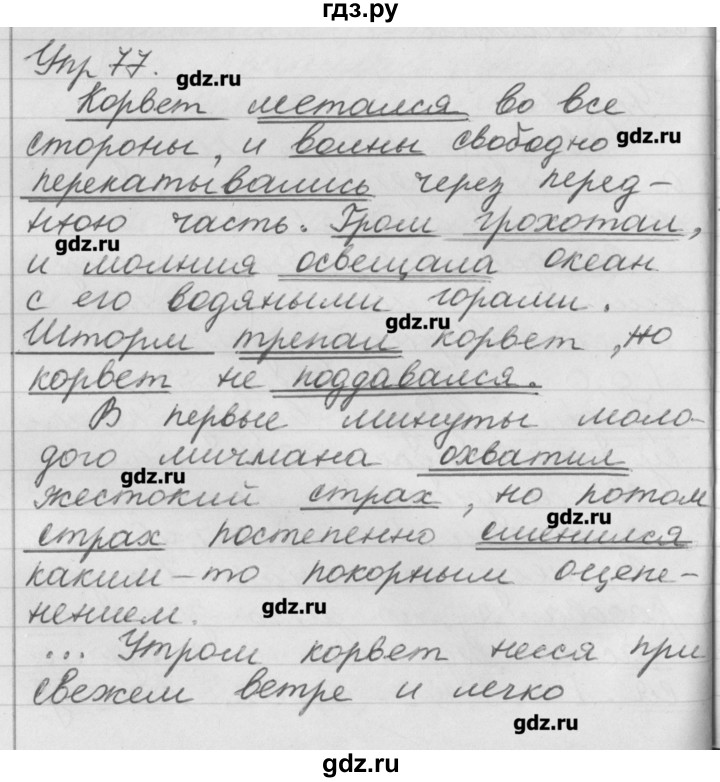 гдз.ру
Упр 77.
gdz.ru
Корвет метался во все
стороны, и волны свободно
gdz.ru
перекатывались через перед-
нюю часть. Гром грохотал,
gdz.ru
и молния освещала океан
с его водяными горами.
gdz.ru
Шторм трепал корвет, но
корвет не поддавался.
В первые минуты моло-
дого мичмана охватил
gdz.ru
жестокий страх, но потом
gdz.ru
страх постепенно сменился
каким-то покорным оцепе-
нением.
gdz.ru
... Утром корвет несся при
свежем ветре и легко
gdz.ru
gdz.ru